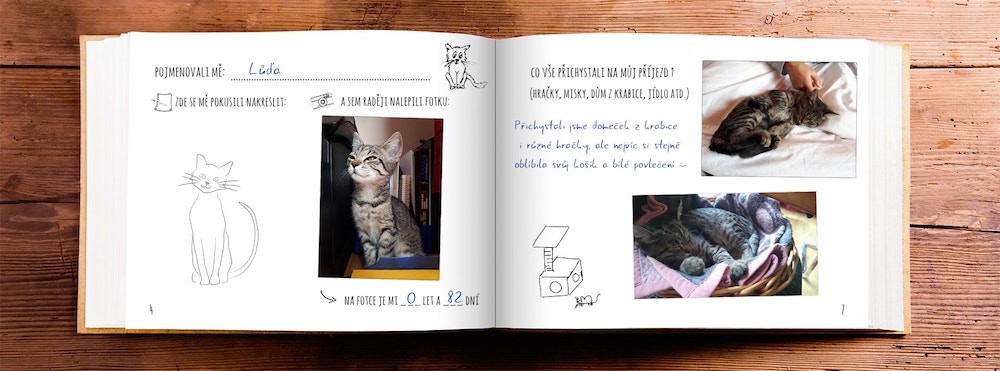 POJMENOVALI MĚ: Lůďa
ZDE SE MĚ POKUSILI NAKRESLIT:
A SEM RADĚJI NALEPILI FOTKU:
NA FOTCE JE MI 0 LET A 82 DNÍ
4
CO VŠE PŘICHYSTALI NA MŮJ PŘÍJEZD?
(HRAČKY, MISKY, DŮM Z KRABICE, JÍDLO ATD.)
Přichystali jsme domeček z krabice
i různé hračky, ale nejvíc si stejně
oblíbila svůj košík a bílé povlečení
7